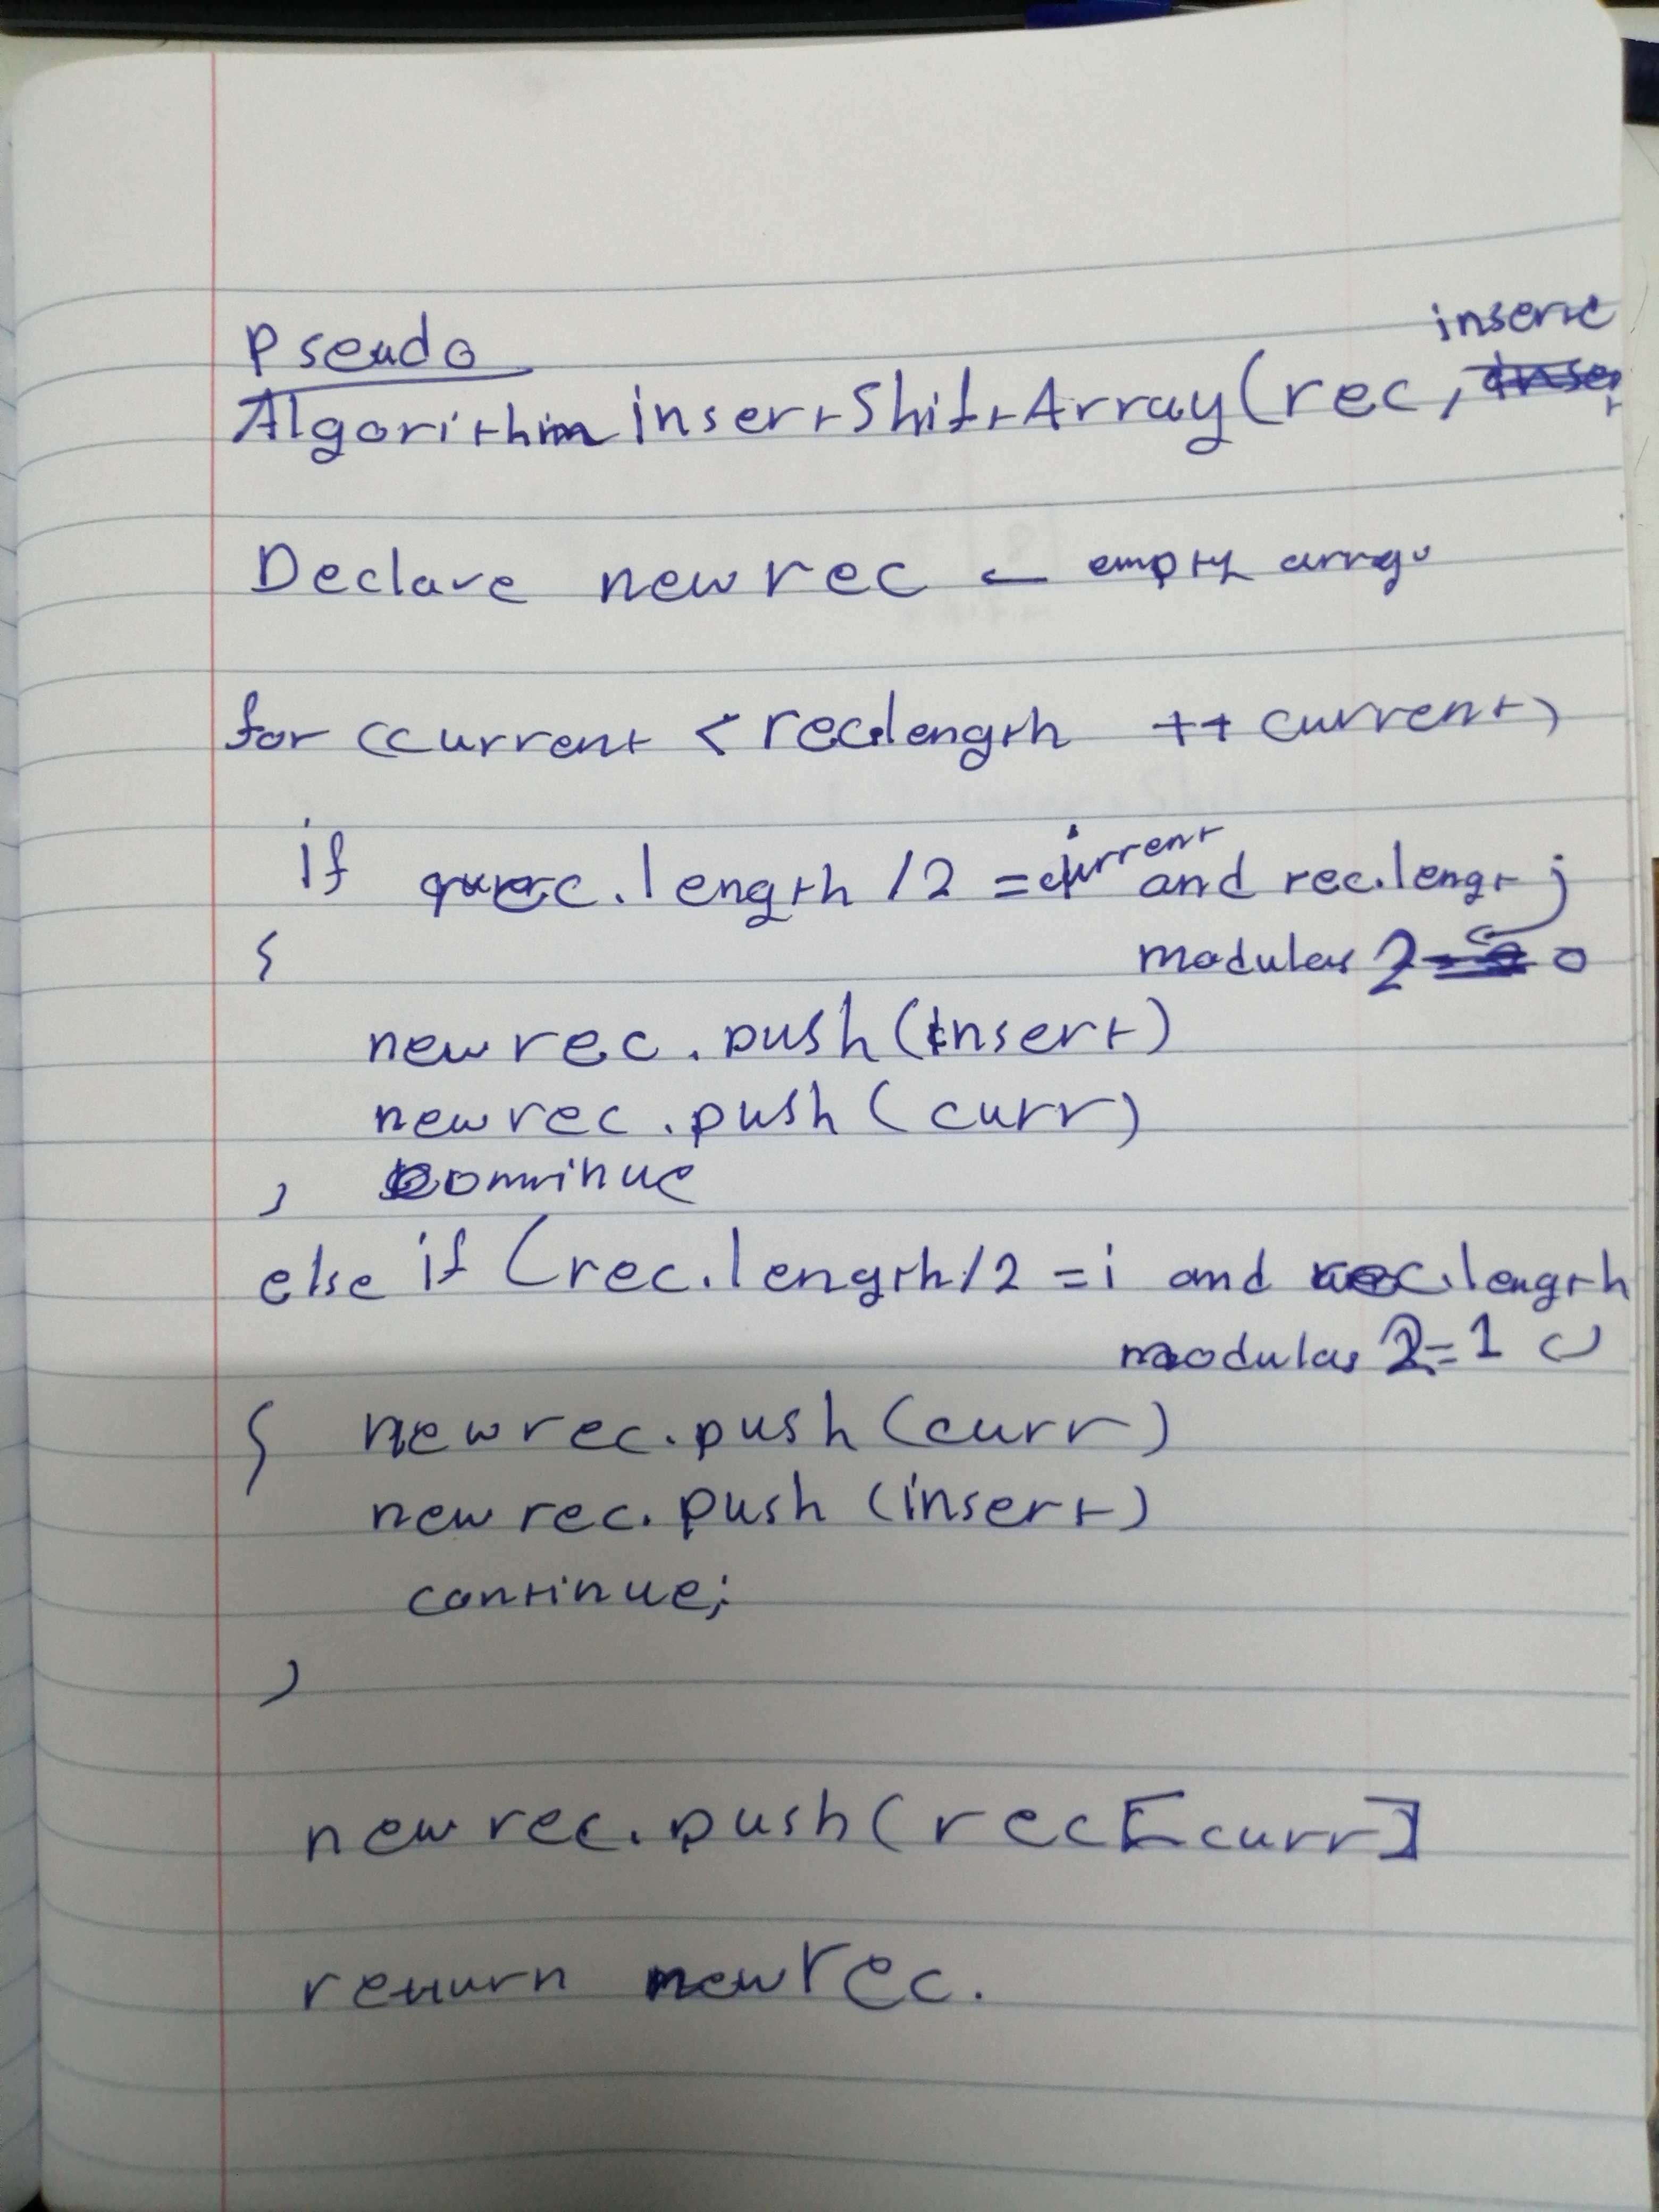 Pseudo
insert
Algorithim insertShiftArray(rec,
Declare newrec ← empty array
for (current < rec.length ++ current)
if rec.length /2 = current and rec.lengt
{ modulas 2 0
newrec.push(insert)
newrec.push(curr)
} continue
else if (rec.length/2 = i and rec.length
modulas 2=1
{ newrec.push(curr)
newrec.push(insert)
continue;
}
newrec.push(rec[curr]
return newrec.